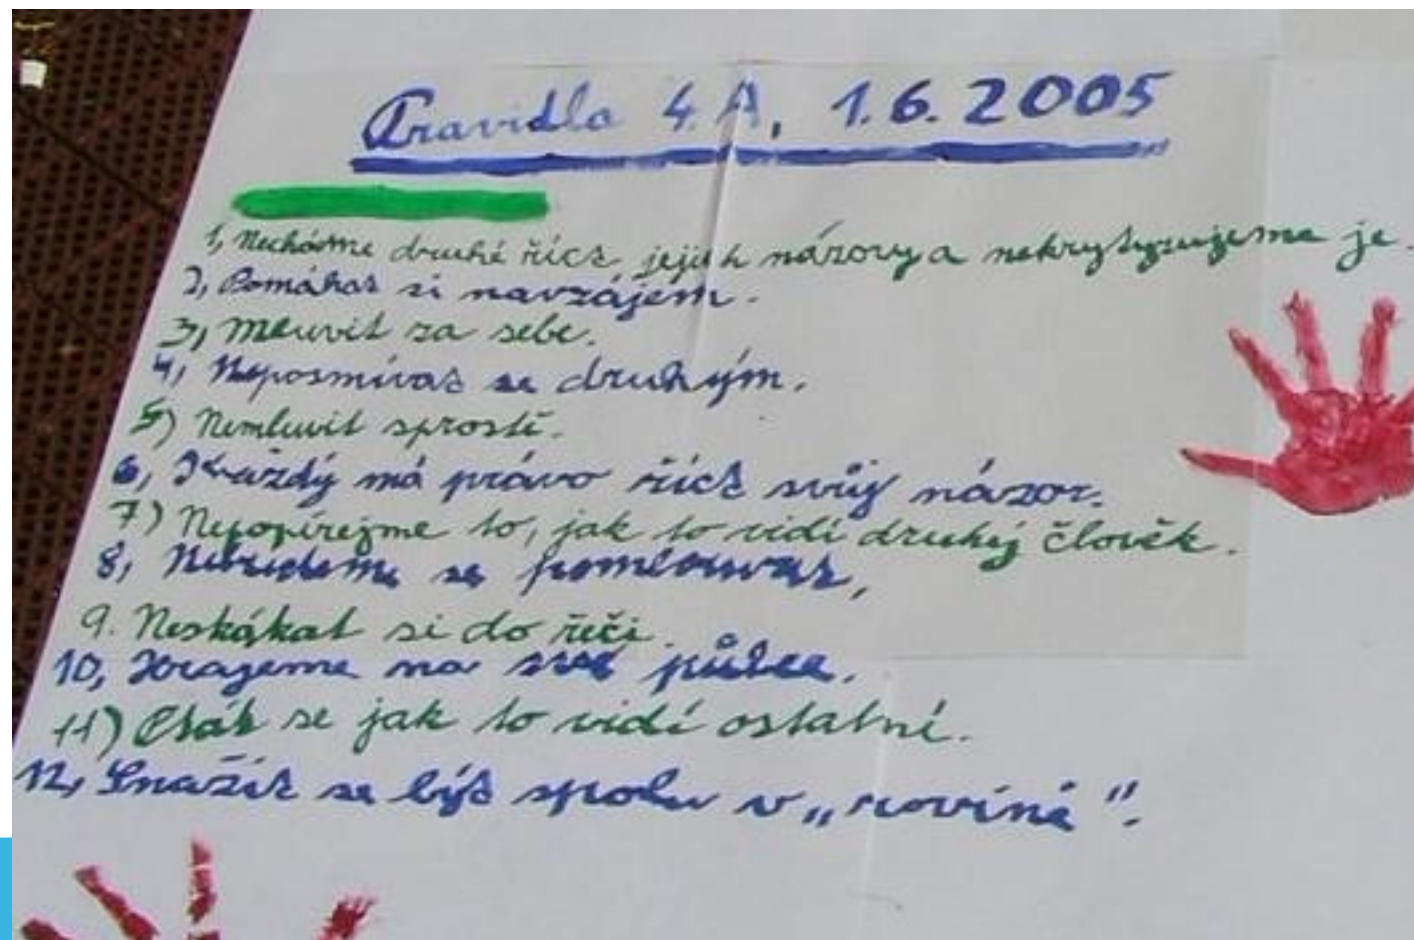 Pravidla 4.A, 1.6.2005
1, Necháme druhé říct, jejich názory a nekrytyzujeme je.
2, Pomáhat si navzájem.
3, Mluvit za sebe.
4, Neposmívat se druhým.
5) Nemluvit sprostě.
6, Každý má právo říct svůj názor.
7) Nepopírejme to, jak to vidí druhej člověk.
8, Nebudeme se pomlouvat,
9. Neskákat si do řeči.
10, Hrajeme na své půlce.
11) Ptát se jak to vidí ostatní.
12, Snažit se být spolu v „rovině".